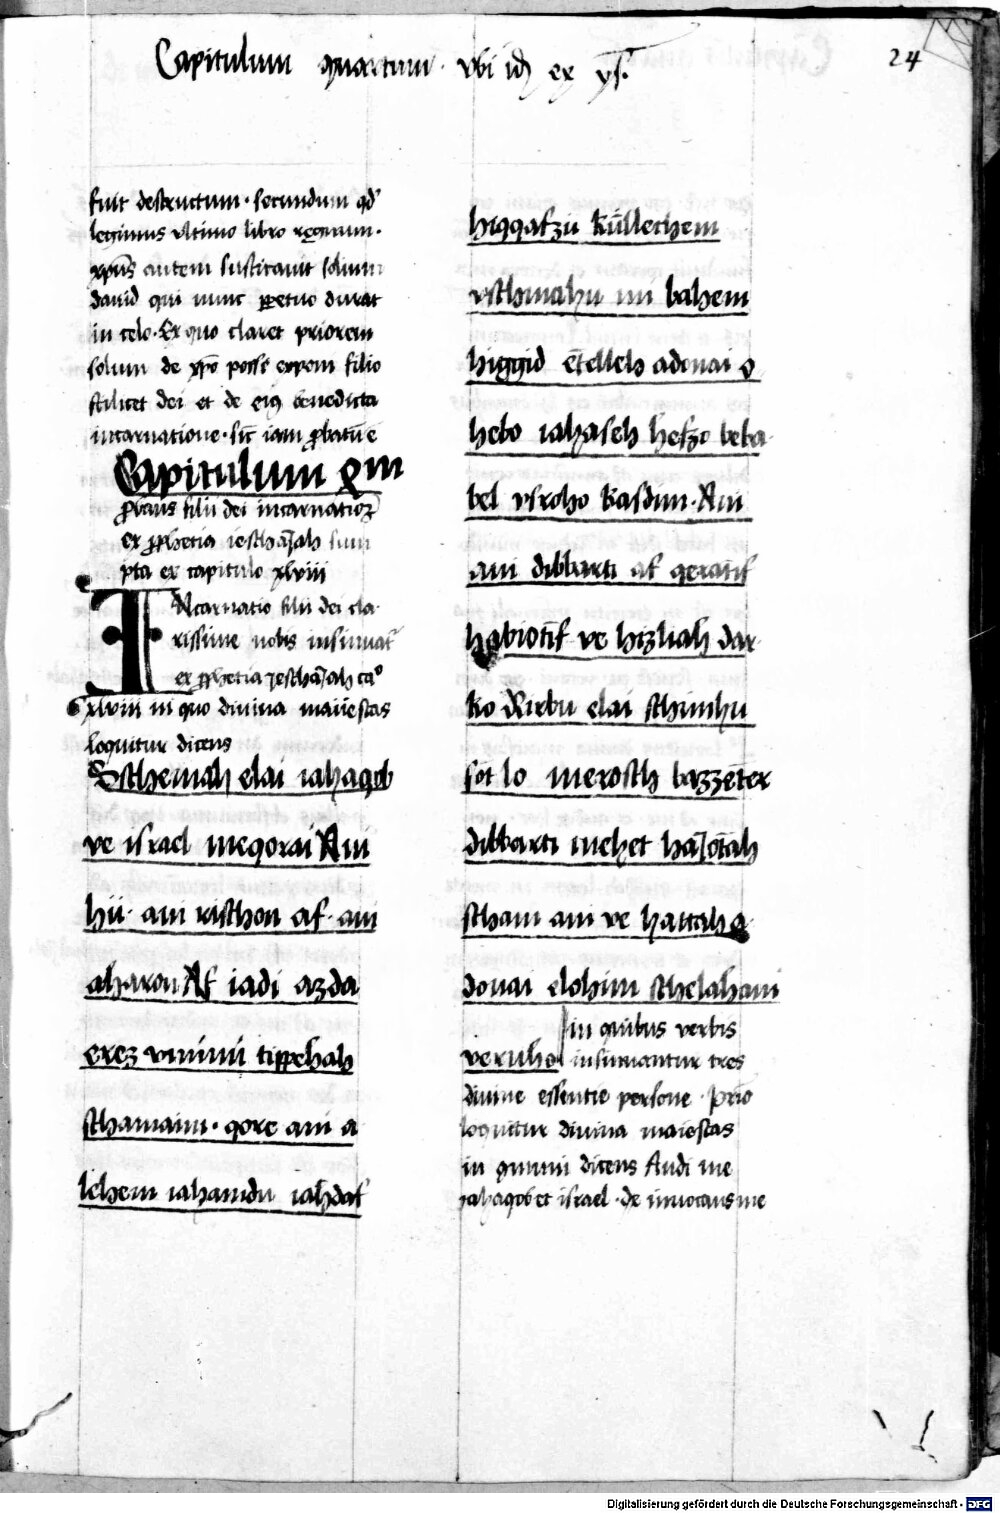 Capitulum quartum · vbi id ex ys.
24
fuit destructum · secundum qd
legimus vltimo libro regnum ·
xpus autem suscitauit solium
dauid qui nunc ppetuo durat
in celo · Ex quo claret priorem
solum de xpo posse exponi filio
scilicet dei et de eius benedicta
incarnatione · sic iam probatum e
Capitulum qm
probans filii dei incarnationem
ex prophetia ieschaJah sum
pta ex capitulo xlviii
INcarnatio filii dei cla-
rissime nobis insinuat
ex prophetia JeschaJah cao
xlviii in quo diuina maiestas
loquitur dicens
Sschemah elai iahaqob
ve israel meqorai Ani
hu · ani rischon af · ani
aharon Af iadi azda
erez vimini tippehah
schamaim · qore ani a
lehem iahamdu iahdaf
hiqqafzu kullechem
vschmahu mi bahem
higgid etelleh adonai o
hebo iahaseh hefzo beba
bel vsroho kasdim · Ani
ani dibbarti af qeratif
habiotif ve hizliah dar
ko Kirbu elai schimhu
sot lo merosch bazzeter
dibbarti mehet haJotah
scham ani ve hattah a
donai elohim schelahani
veruho in quibus verbis
insinuantur tres
diuine essentie persone · Prio
loquitur diuina maiestas
in qmuni dicens Audi me
Jahaqob et israel · de inuocans me
Digitalisierung gefördert durch die Deutsche Forschungsgemeinschaft - DFG